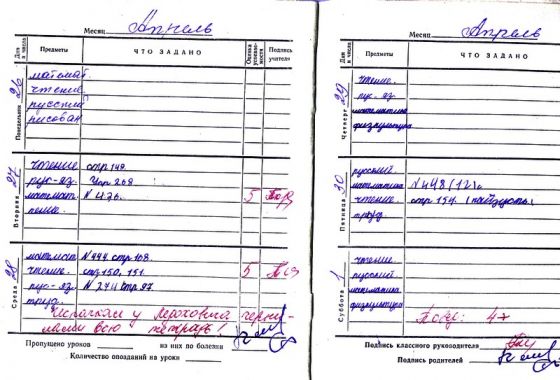 Месяц Апрель
Дни и числа
Предметы
ЧТО ЗАДАНО
Оценка успеваемости
Подпись учителя
Понедельник 26
математ.
чтение.
русский
рисован
Вторник 27
чтение стр 149.
рус-яз. Упр 268.
математ. N 436. 5
пение.
Среда 28
математ N 444 стр 168.
чтение. стр 150, 151. 5
рус-яз. N 274 стр 97
труд.
Испачкал у Лероховича чернилами всю тетрадь!
Пропущено уроков из них по болезни
Количество опозданий на уроки
Месяц Апрель
Дни и числа
Предметы
ЧТО ЗАДАНО
Четверг 29
чтение.
рус-яз.
математика
физкультура
Пятница 30
русский.
математика N 448 (12).
чтение. стр 154. (наизусть)
труд.
Суббота 1
чтение.
русский
математика
физкультура
Повед: 4+
Подпись классного руководителя
Подпись родителей